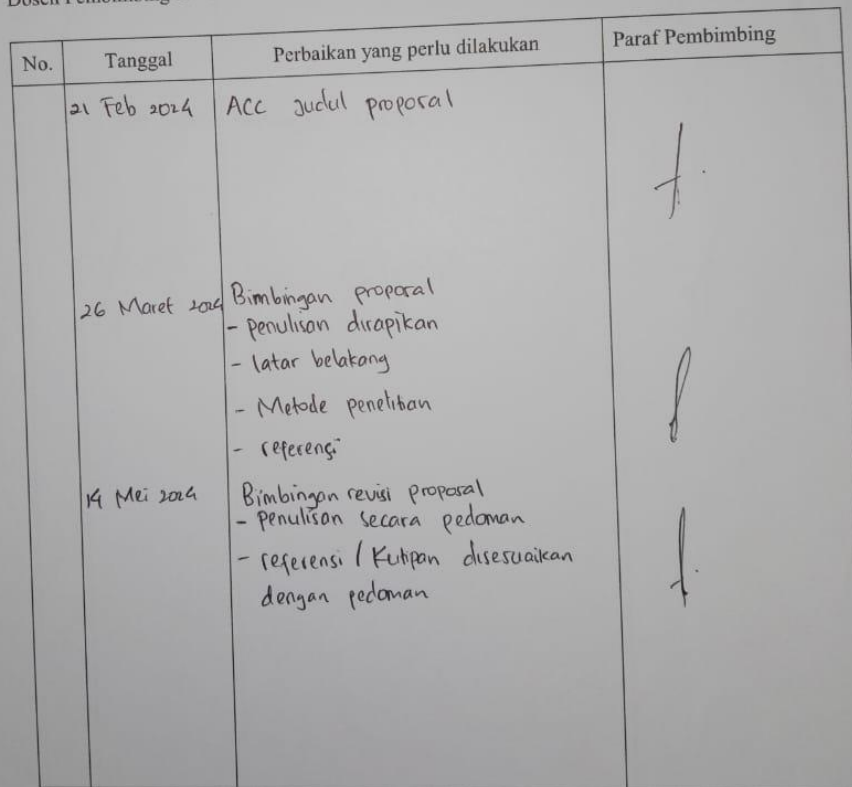 No. Tanggal Perbaikan yang perlu dilakukan Paraf Pembimbing
21 Feb 2024 ACC Judul proposal
26 Maret 2024 Bimbingan proposal
- penulisan dirapikan
- latar belakang
- Metode penelitian
- referensi
14 Mei 2024 Bimbingan revisi proposal
- penulisan secara pedoman
- referensi / Kutipan disesuaikan
dengan pedoman